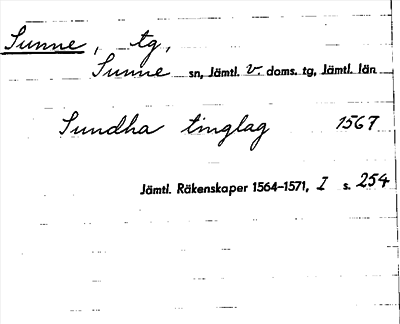 Sunne, tg,
Sunne sn, Jämtl. v. doms. tg, Jämtl. län
Sundha tinglag 1567
Jämtl. Räkenskaper 1564–1571, I s. 254